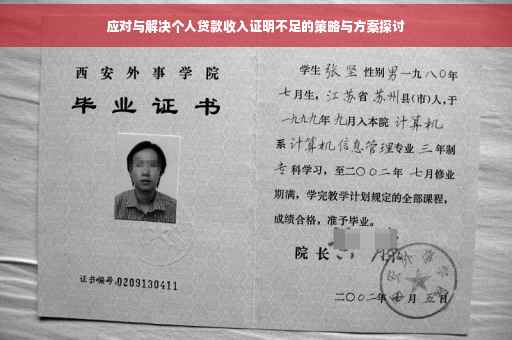 应对与解决个人贷款收入证明不足的策略与方案探讨
西安外事学院
毕业证书
证书编号:0209130411
学生 张坚 性别 男 一九八〇年
七月生，江苏省 苏州县(市)人,于
一九九九年 九月入本院 计算机
系 计算机信息管理专业 三 年制
专 科学习，至二〇〇二年 七月修业
期满，学完教学计划规定的全部课程，
成绩合格，准予毕业。
院 长
二〇〇二年 七 月 五 日